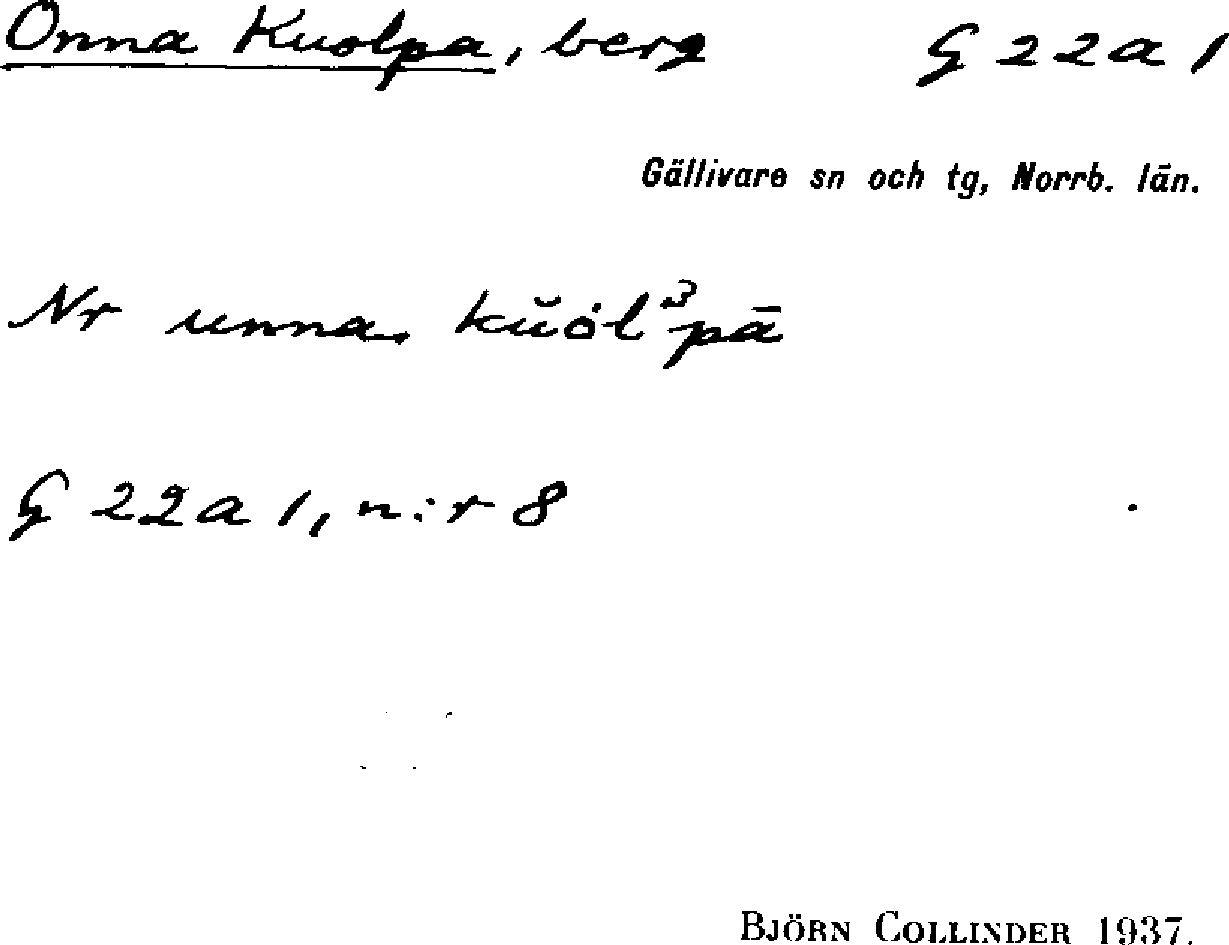 Onna Kuolpa, berg G 22a 1
Gällivare sn och tg, Norrb. län.
Nr unna kŭȯl³pā
G 22a 1, n:r 8
BJÖRN COLLINDER 1937.